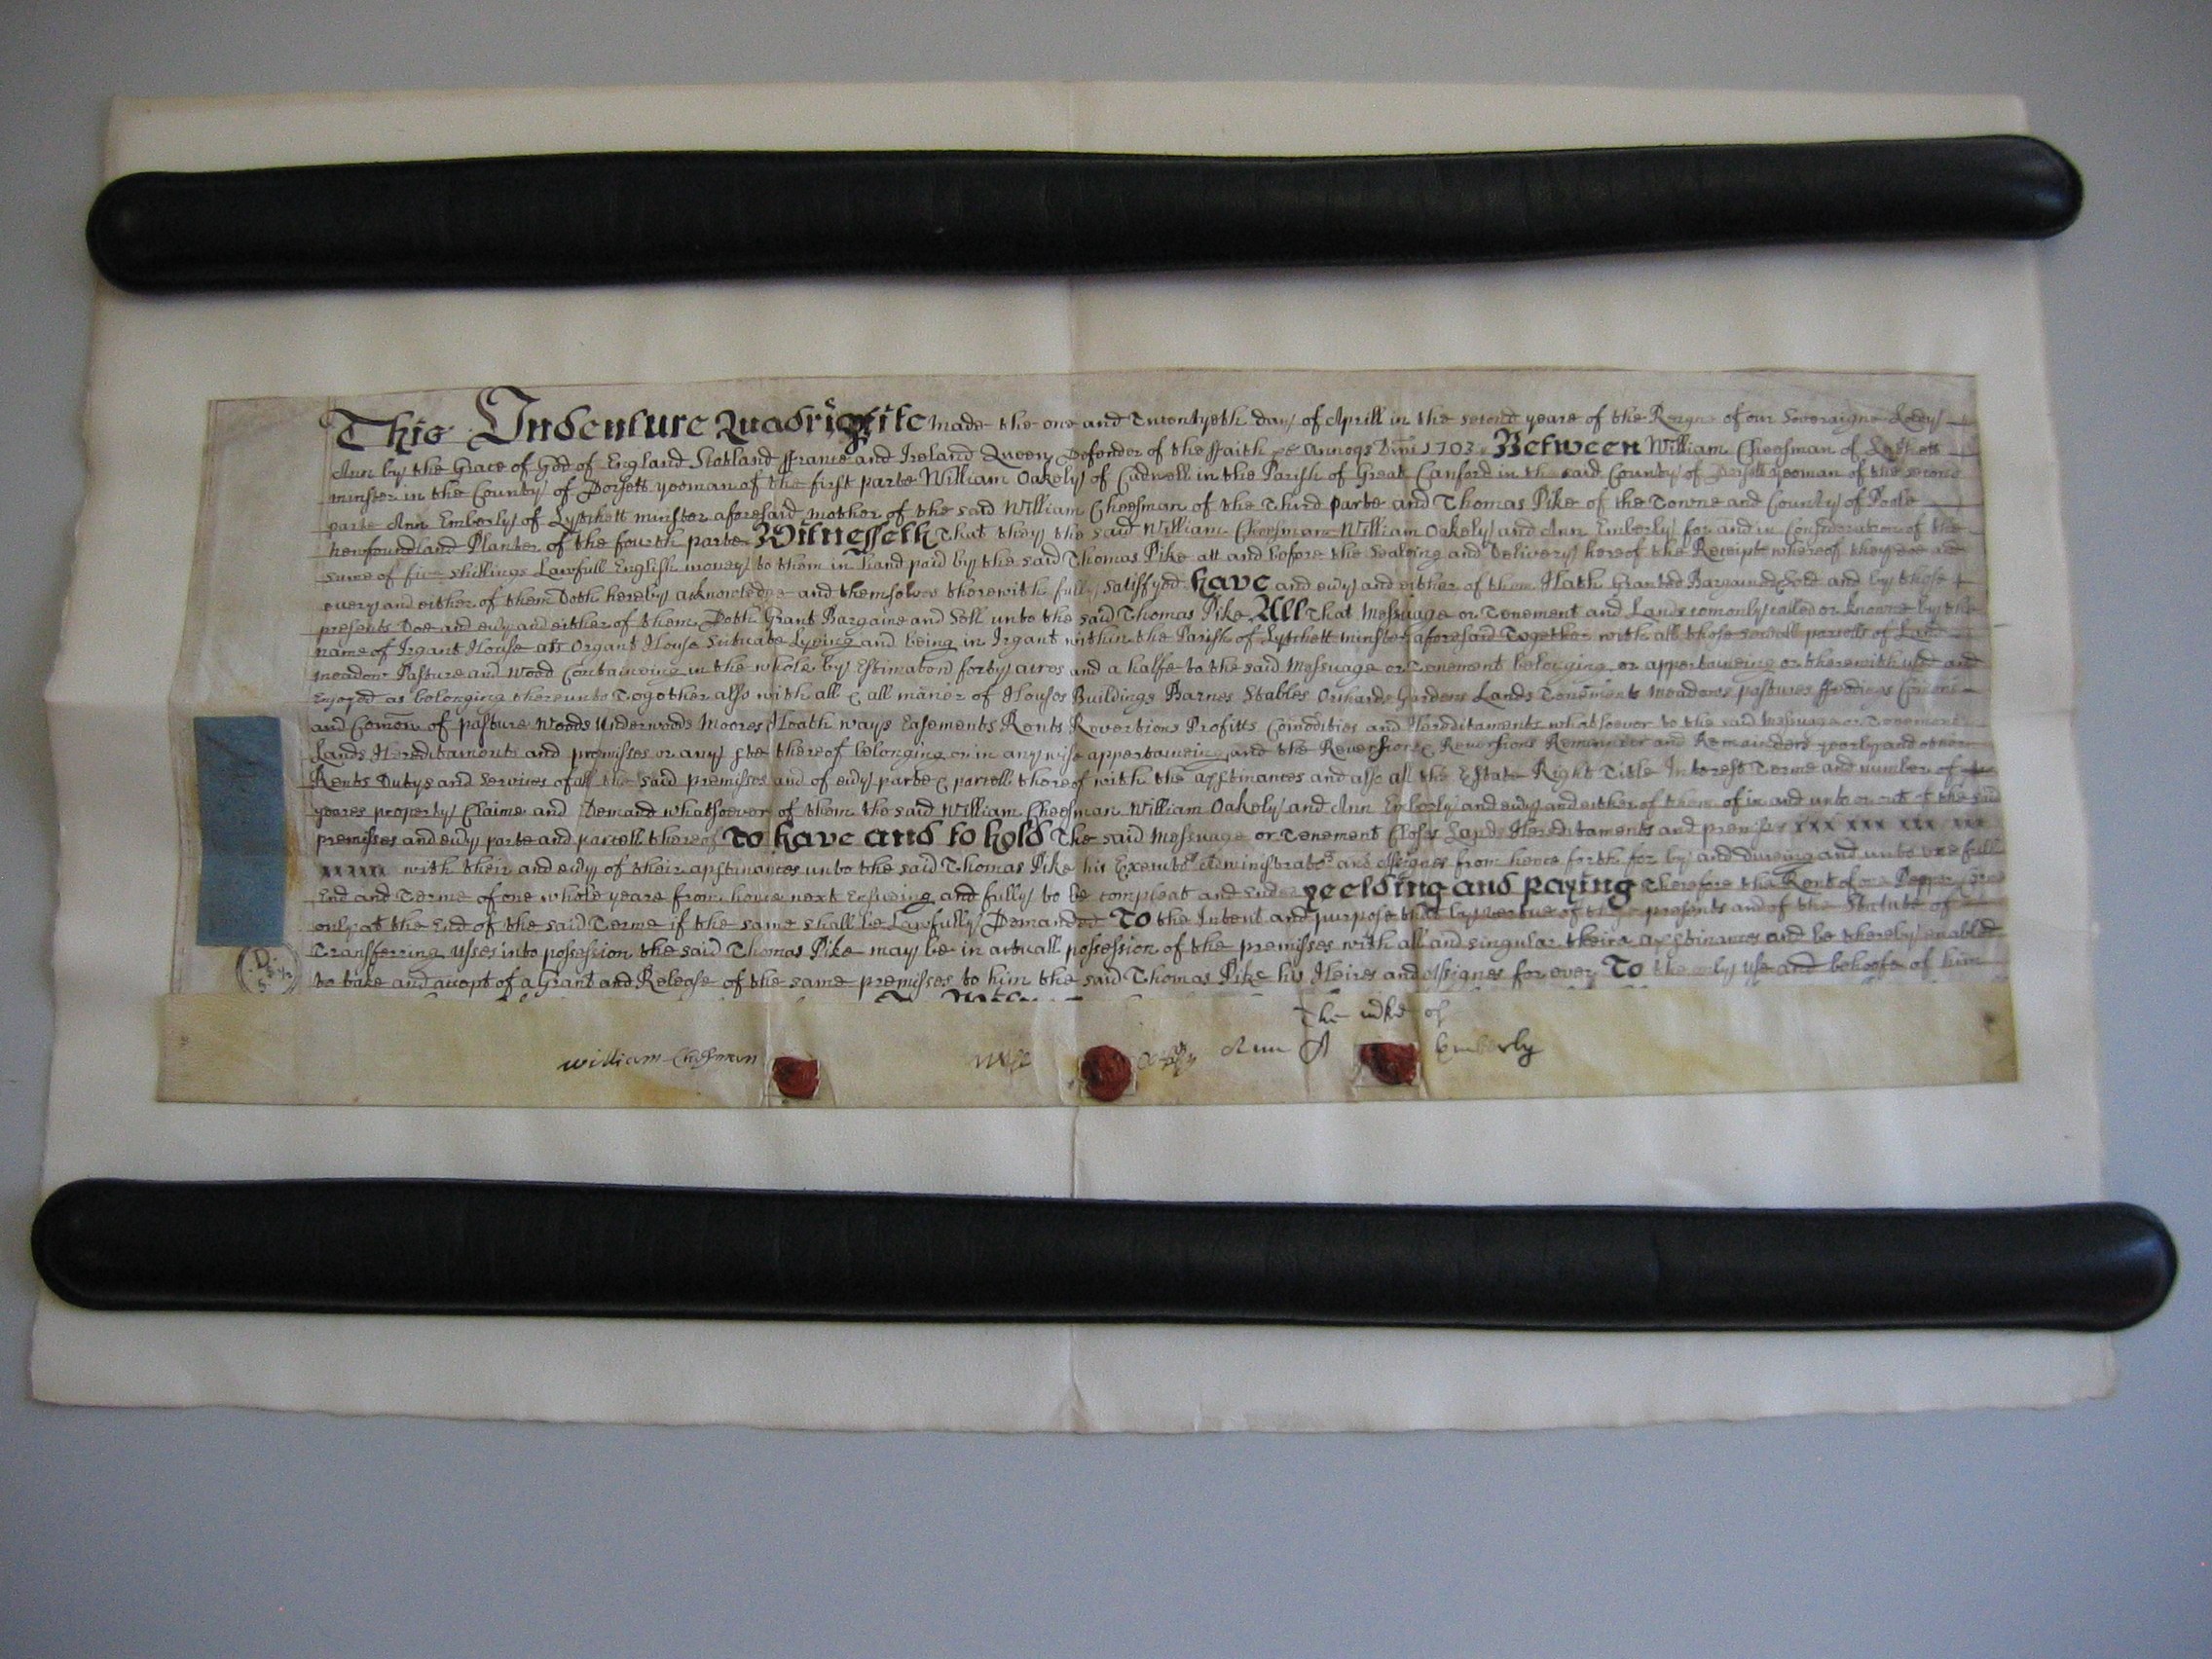 This Indenture Quadripartite made the one and Twentyeth day of Aprill in the second yeare of the Reigne of our Soveraigne Lady
Ann by the Grace of God of England Scotland ffrance and Ireland Queen Defender of the ffaith Annoqs Dmi 1703 Between William Cheesman of Lytchett
minster in the County of Dorsett yeoman of the first parte William Oakely of Cudnell in the Parish of Great Canford in the said County of Dorsett yeoman of the second
parte Ann Emberly of Lytchett minster aforesaid mother of the said William Cheesman of the Third parte and Thomas Pike of the Towne and County of Poole
newfoundland Planter of the fourth parte Witnesseth That they the said William Cheesman William Oakely and Ann Emberly for and in Consideration of the
sume of five shillings Lawfull English money to them in hand paid by the said Thomas Pike att and before the Sealeing and Delivery hereof the Receipt whereof they doe and
every and either of them Doth hereby acknowledge and themselves therewith fully satisfyed have and evy and either of them Hath Granted Bargained Sold and by these
presents Doe and evy and either of them Doth Grant Bargaine and Sell unto the said Thomas Pike All That Messuage or Tenement and Lands comonly called or knowne by the
name of Irgant House als Organt House Scituate Lyeing and being in Irgant within the Parish of Lytchett minster aforesaid Together with all those severall parcells of Land
meadow Pasture and Wood Containeing in the whole by Estimation forty acres and a halfe to the said Messuage or Tenement belonging or appertaineing or therewith used and
Enjoyed as belonging thereunto Together also with all & all maner of Houses Buildings Barnes Stables Orchards Gardens Lands Tenements meadows pastures ffeedings Comons
and Comon of pasture Woods Underwoods Moores Heath ways Easements Rents Revertions Profitts Comodities and Hereditaments whatsoever to the said Messuage or Tenement
Lands Hereditaments and premisses or any pte thereof belonging or in any wise appertaineing and the Reversion & Reversions Remainder and Remainders yearly and other
Rents Dutys and Services of all the said premisses and of evy parte & parcell thereof with the apptinances and also all the Estate Right Title Interest Terme and number of
yeares property Claime and Demand whatsoever of them the said William Cheesman William Oakely and Ann Emberly and evy and either of them of in and unto or out of the said
premisses and evy parte and parcell thereof To have and to hold The said Messuage or Tenement Closes Lands Hereditaments and premisses xxx xxx xxx xxx
xxxxx with their and evy of their aptinances unto the said Thomas Pike his Executors Administrators and Assignes from hence forth for by and dureing and unto the full
End and Terme of one whole yeare from hence next Ensueing and fully to be compleat and Ended yeelding and paying therefore the Rent of one Pepper Corne
only at the End of the said Terme if the same shall be Lawfully Demanded To the Intent and purpose that by vertue of these presents and of the Statute of
Transferring usses into possession the said Thomas Pike may be in actuall possession of the premisses with all and singular theire aptinances and be thereby enabled
to take and accept of a Grant and Release of the same premisses to him the said Thomas Pike his Heires and Assignes for ever To the only use and behoofe of him
The of
William Chesman Will Ann A Emberly